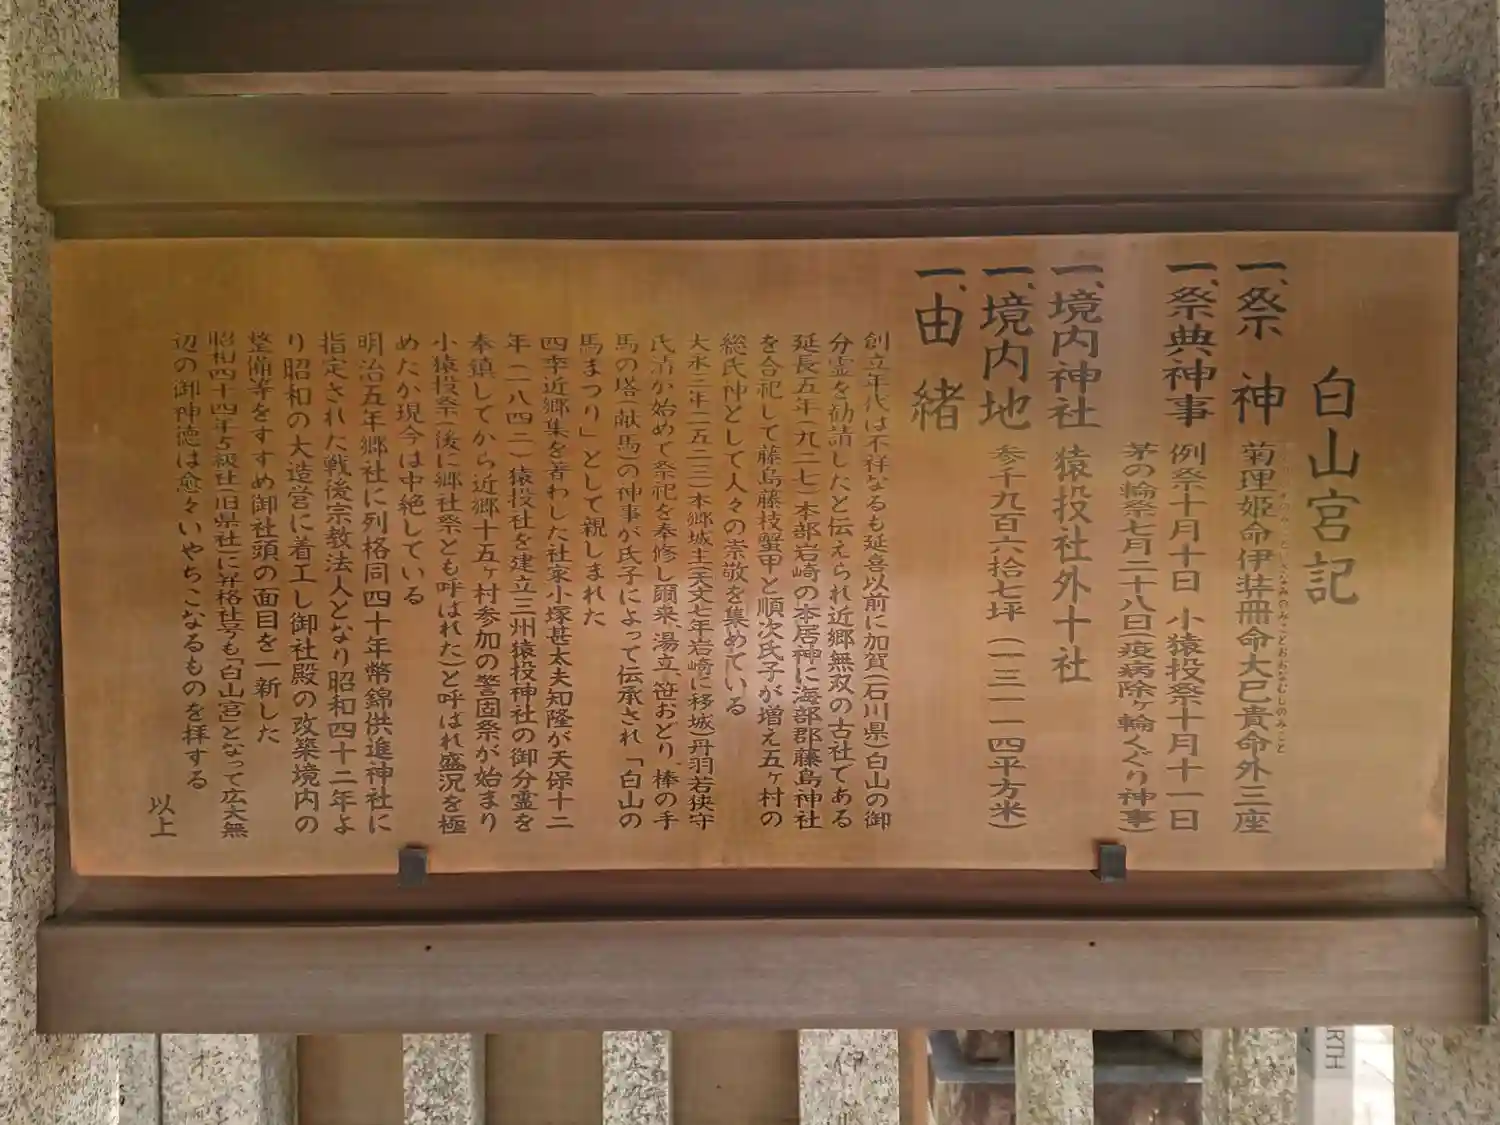 白山宮記
一、祭神 菊理姫命伊弉冊命大已貴命外三座
一、祭典神事 例祭十月十日 小猿投祭十月十一日
茅の輪祭七月二十八日(疫病除ヶ輪くぐり神事)
一、境内神社 猿投社外十社
一、境内地 参千九百六拾七坪(一三一一四平方米)
一、由緒
創立年代は不祥なるも延喜以前に加賀(石川県)白山の御
分霊を勧請したと伝えられ近郷無双の古社である
延長五年(九二七)本部岩崎の本居神に海部郡藤島神社
を合祀して藤島藤枝蟹甲と順次氏子が増え五ヶ村の
総氏神として人々の崇敬を集めている
大永三年(一五二三)本郷城主(天文七年岩崎に移城)丹羽若狭守
氏清が始めて祭祀を奉修し爾来、湯立、笹おどり、棒の手
馬の塔(献馬)の神事が氏子によって伝承され「白山の
馬まつり」として親しまれた
四季近郷集を著わした社家小塚甚太夫知隆が天保十二
年(一八四二)猿投社を建立三州猿投神社の御分霊を
奉鎮してから近郷十五ヶ村参加の警固祭が始まり
小猿投祭(後に郷社祭とも呼ばれた)と呼ばれ盛況を極
めたか現今は中絶している
明治五年郷社に列格同四十年幣錦供進神社に
指定された戦後宗教法人となり昭和四十二年よ
り昭和の大造営に着工し御社殿の改築境内の
整備等をすすめ御社頭の面目を一新した
昭和四十四年五級社(旧県社)に昇格社号も「白山宮」となって広大無
辺の御神徳は愈々いやちこなるものを拝する
以上